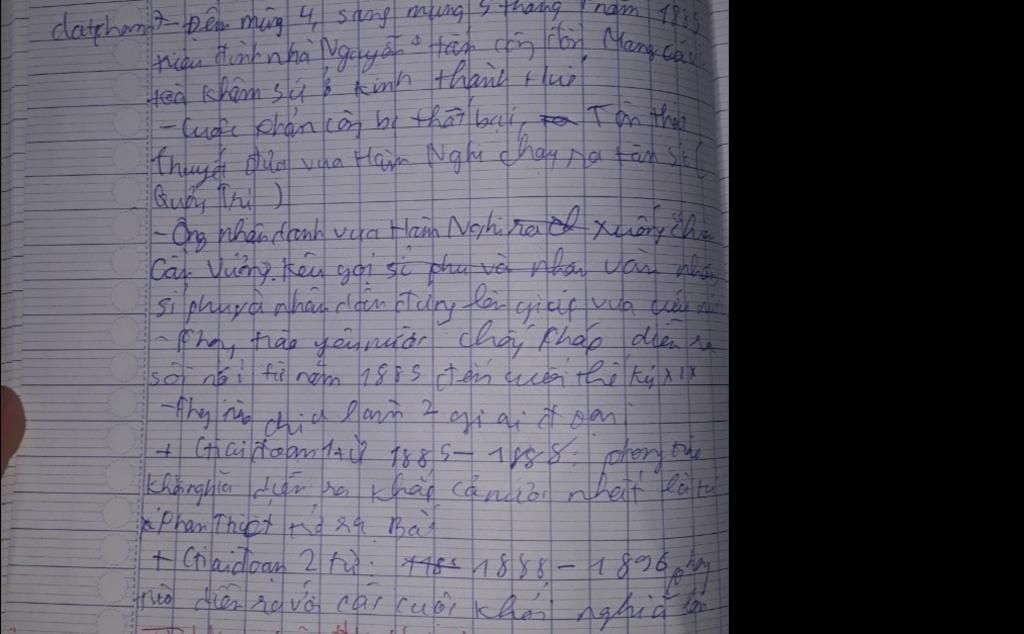 datpham7 - Đêm mùng 4, sáng mùng 5 tháng 7 năm 1885
triều đình nhà Nguyễn tấn công đồn Mang Cá
toà Khâm sứ ở kinh thành Huế
- Cuộc phản công bị thất bại, Tôn thất
thuyết đưa vua Hàm Nghi chạy ra tân sở (
Quảng Trị )
- Ông nhân danh vua Hàm Nghi xuống chiếu
Cần Vương. Kêu gọi
sĩ phu và nhân dân đứng lên giúp vua cứu
- Phong trào yêu nước chống Pháp diễn ra
sôi nổi từ năm 1885 đến cuối thế kỷ XIX
- Phong trào chia làm 2 giai đoạn
+ Giai đoạn 1: từ 1885 - 1888: phong trào
khởi nghĩa diễn ra khắp cả nước nhất là từ
Phan Thiết trở ra Bắc
+ Giai đoạn 2 từ: 1888 - 1896 phong
trào diễn ra với các cuộc khởi nghĩa lớn